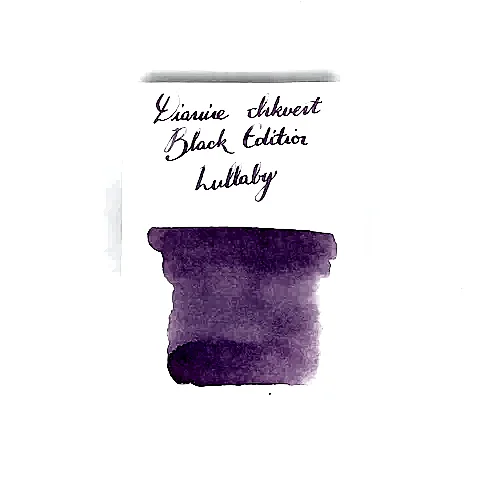 Diamine Inkvent
Black Edition
Lullaby